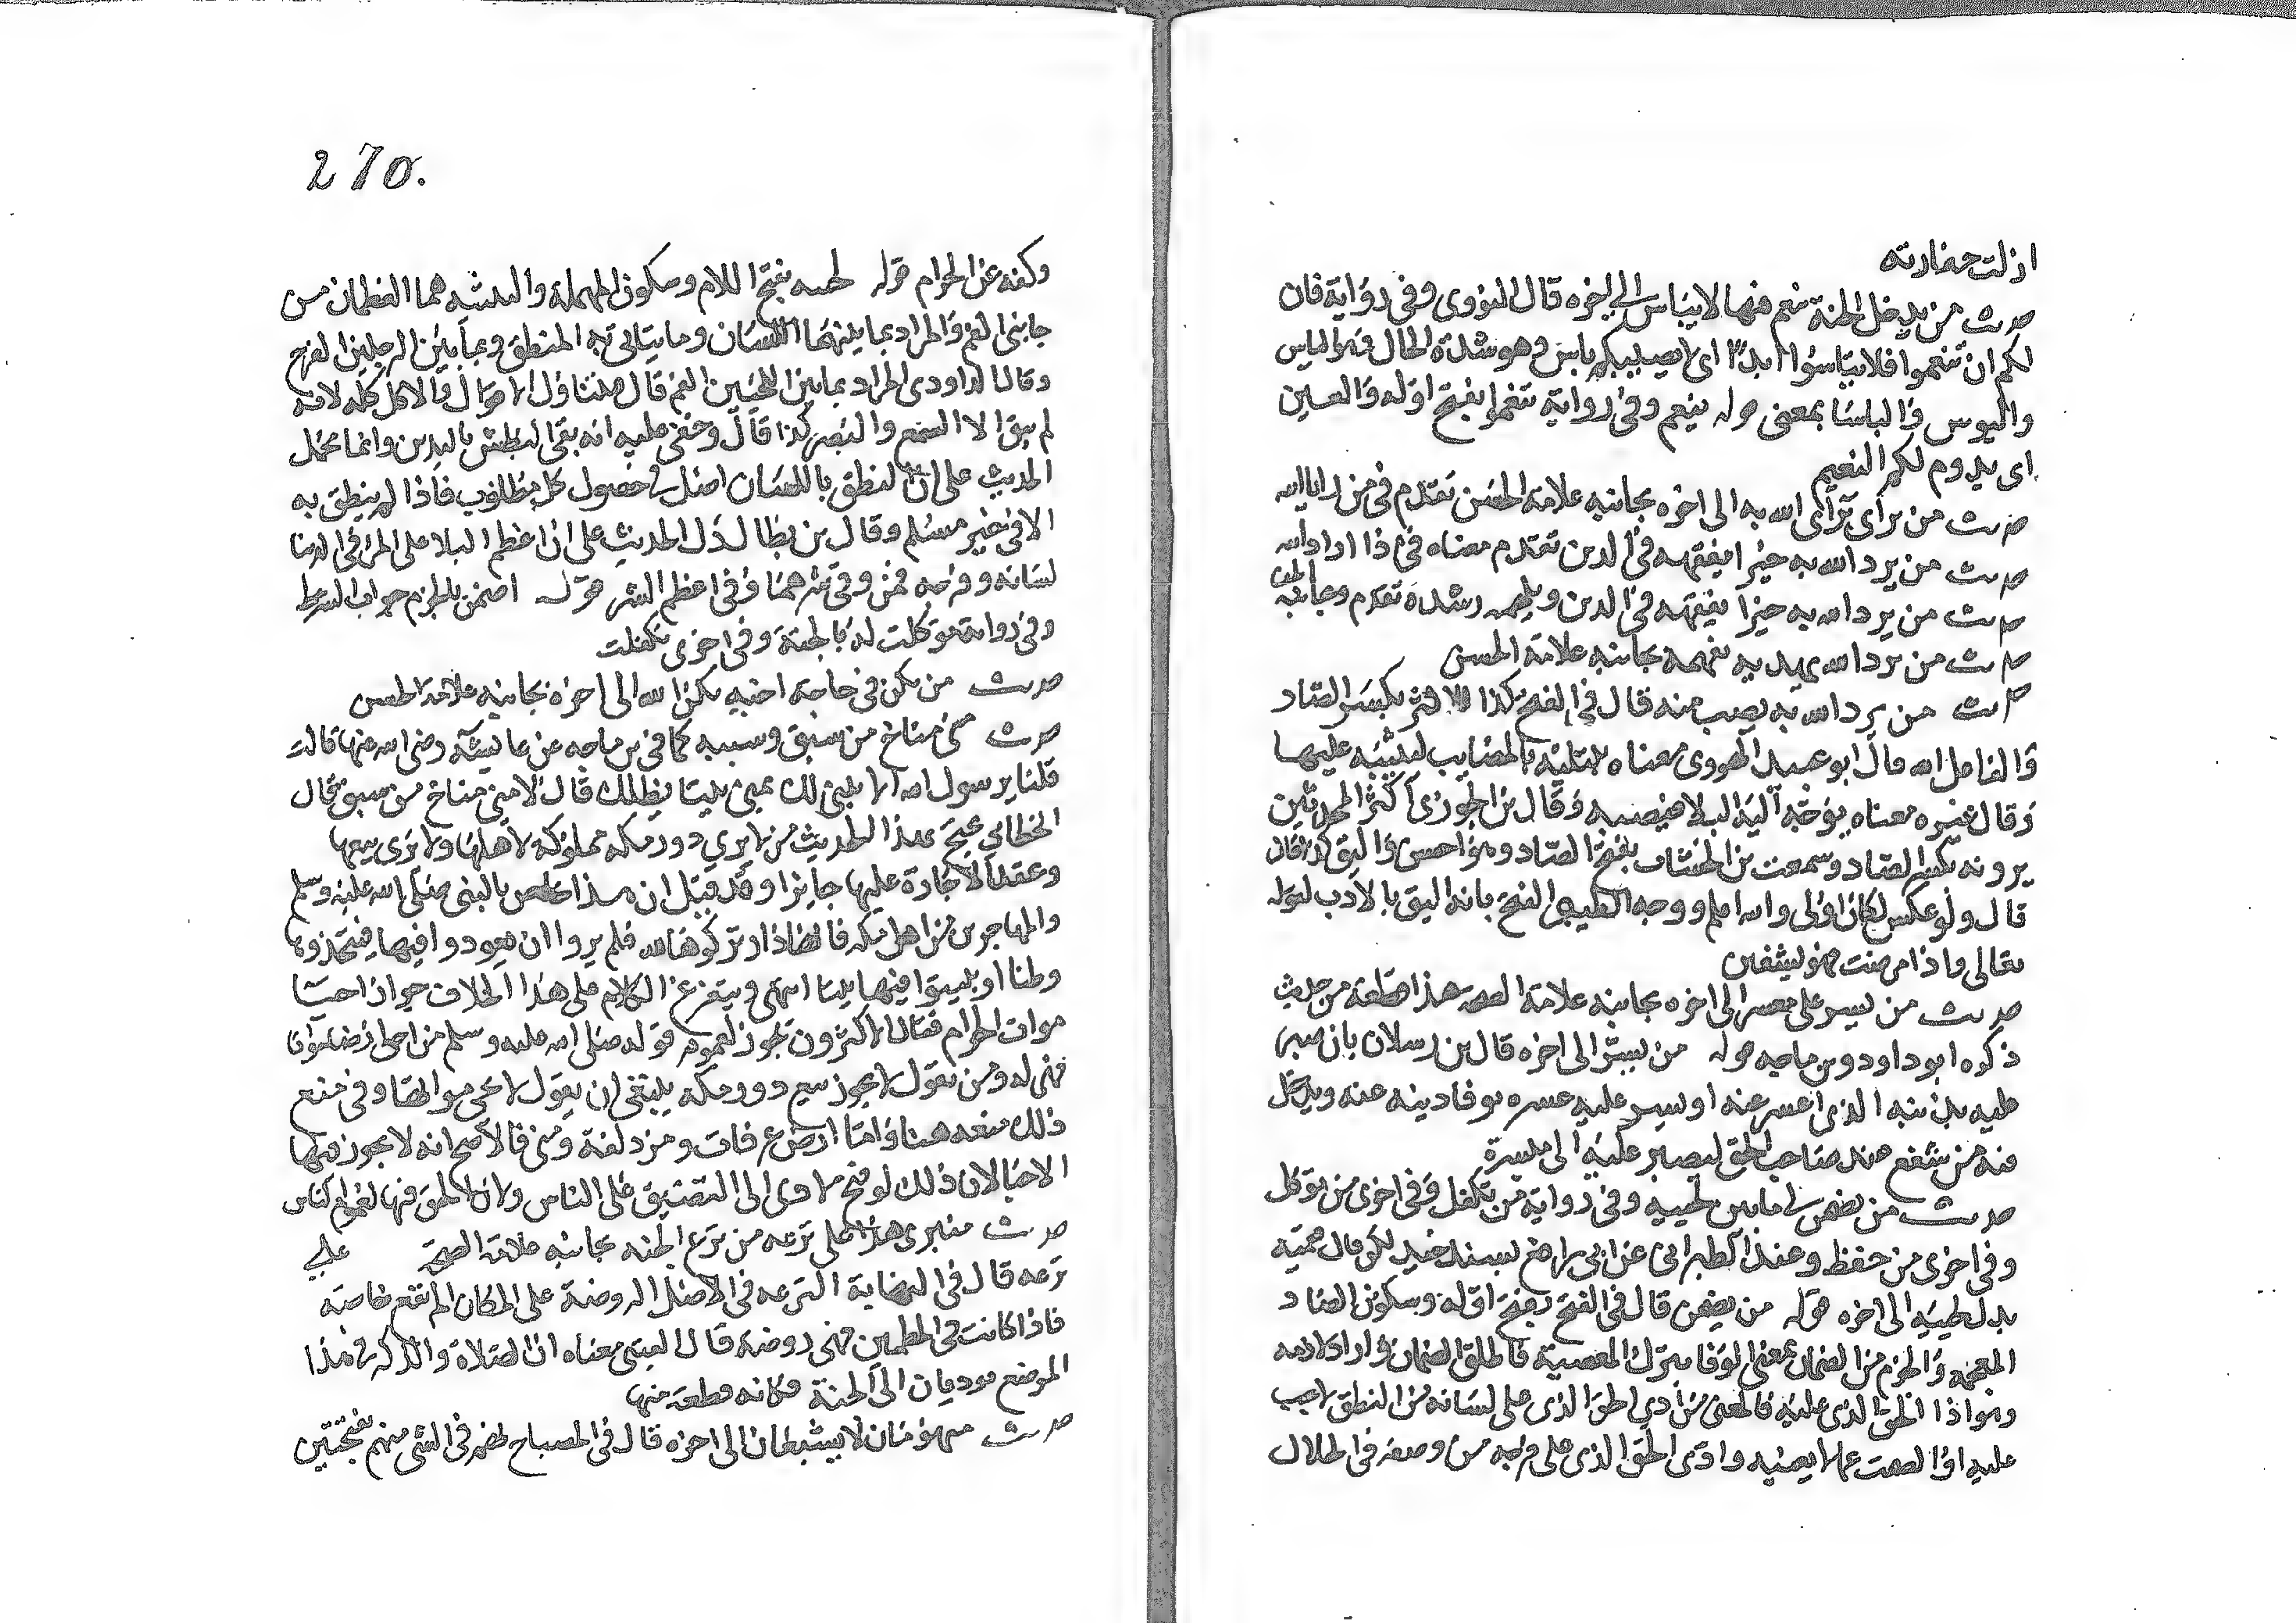 ازلت حضارته
حديث من يدخل الجنة ينعم فيها لا يباس الى اخره قال النووي وفي رواية فان
لكم ان تنعموا فلا تباسوا ابدا اي لا يصيبكم باس وهو شدة الحال والباس
والبوس والباسا بمعنى قوله ينعم وفي رواية تنعموا بفتح اوله والعين
اي يدوم لكم النعيم
حديث من يرآى يرآى الله به الى اخره بجانبه علامة الحسن تقدم في من رايا الله
حديث من يرد الله به خيرا يفقهه في الدين تقدم معناه في اذا اراد الله
حديث من يرد الله به خيرا يفقهه في الدين ويلهمه رشده تقدم وبجانبه الحسن
حديث من يرد الله يهديه يفهمه بجانبه علامة الحسن
حديث من يرد الله به يصب منه قال في الفتح كذا الاكثر بكسر الصاد
والفاعل الله قال ابو عبيد الهروي معناه يبتليه بالمصايب ليثيبه عليها
وقال غيره معناه يوجه اليه البلا فيصيبه وقال بن الجوزي اكثر المحدثين
يرونه بكسر الصاد وسمعت بن الخشاب بفتح الصاد وهو احسن واليق كذا قال
قال ولو عكس لكان اولى والله اعلم ووجه الطيبي الفتح بانه اليق بالادب لقوله
تعالى واذا مرضت فهو يشفين
حديث من يسر على معسر الى اخره بجانبه علامة الصحة هذا قطعة من حديث
ذكره ابو داود وبن ماجه قوله من يسر الى اخره قال بن رسلان بان صبر
عليه بدينه الذي اعسر عنه او يسر عليه عسره بوفا دينه عنه ويدخل
فيه من شفع عند صاحب الحق ليصبر عليه الى ميسرة
حديث من يضمن لي ما بين لحييه وفي رواية من تكفل وفي اخرى من توكل
وفي اخرى من حفظ وعند الطبراني عن ابي رافع بسند جيد لكن قال فقميه
بدل لحييه الى اخره قوله من يضمن قال في الفتح بفتح اوله وسكون الضاد
المعجمة والجزم من الضمان بمعنى الوفا بترك المعصية فاطلق الضمان واراد لازمه
وهو اذا الحق الذي عليه فالمعنى من ادي الحق الذي على لسانه من النطق لما يجب
عليه او الصمت عما لا يعنيه وادى الحق الذي على فرجه من وضعه في الحلال
270.
وكفه عن الحرام قوله لحييه بفتح اللام وسكون المهملة والتثنيه هما العظمان من
جانبي الفم والمراد بما بينهما اللسان وما يتاتى به المنطق وبما بين الرجلين الفرج
وقال الداودي المراد بما بين اللحيين الفم قال فيتناول الاقوال والاكل كله لانه
لم يبق الا السمع والبصر كذا قال وخفي عليه انه بقى البطش باليدين وانما محمل
الحديث على ان النطق باللسان اصل في حصول كل مطلوب فاذا لم ينطق به
الا في خير سلم وقال بن بطال دل الحديث على ان اعظم البلا على المرء في الدنيا
لسانه وفرجه فمن وقي شرهما وقي اعظم الشر قوله اضمن بالجزم جواب الشرط
وفي رواية توكلت له بالجنة وفي اخرى تكفلت
حديث من يكن في حاجة اخيه يكن الله الى اخره بجانبه علامة الحسن
حديث منى مناخ من سبق وسببه كما في بن ماجه عن عايشة رضي الله عنها قالت
قلنا يرسول الله الا نبني لك بمنى بيتا يظلك قال لا منى مناخ من سبق قال
الخطابي يحتج بهذا الحديث من لا يري دور مكة مملوكة لاهلها ولا يرى بيعها
وعقد الاجارة عليها جايزا وقد قيل ان هذا خاص بالنبي صلى الله عليه وسلم
والمهاجرين من اهل مكه فانها دار تركوها لله فلم يروا ان يعودوا فيها فيتخذوها
وطنا او يبنوا فيها بيتا انتهى ويتفرع الكلام على هذا الخلاف جواز احيا
موات الحرام فقال الاكثرون تجوز لعموم قوله صلى الله عليه وسلم من احيا ارضا مواتا
فهي له ومن يقول لا يجوز بيع دور مكة ينبغي ان يقول لا يحي مواتها وفي منع
ذلك منعه هنا واما ارض عرفات ومزدلفة ومنى فالاصح انه لا يجوز فيها
الاحيا لان ذلك لو فتح لادى الى التضييق على الناس ولان الحق فيها لعموم الناس
حديث منبري هذا على ترعه من ترع الجنه بجانبه علامة الصحة على
ترعه قال في النهاية الترعه في الاصل الروضة على المكان المرتفع خاصة
فاذا كانت في المطمين فهي روضة قال القتيبي معناه ان الصلاة والذكر في هذا
الموضع يوديان الى الجنة فكانه قطعة منها
حديث منهومان لا يشبعان الى اخره قال في المصباح نهم في الشي نهم بفتحتين